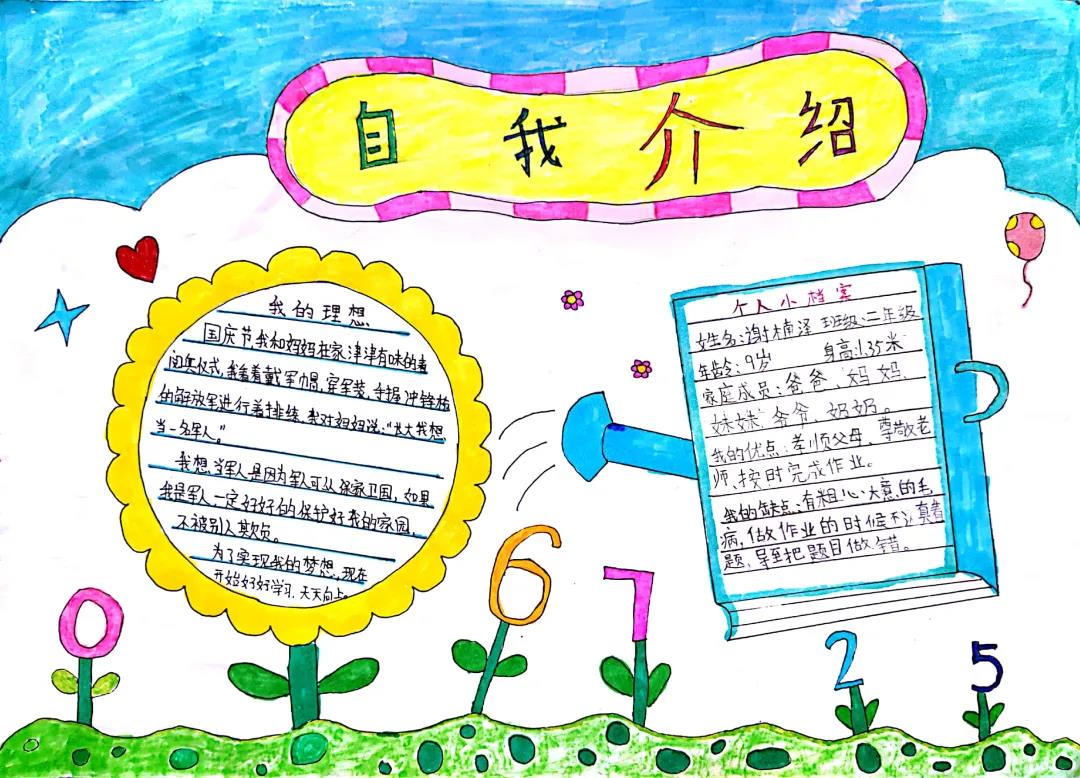 自我介绍
我的理想
国庆节,我和妈妈在家津津有味的看
阅兵仪式,我看着戴军帽,穿军装,手握冲锋枪
的解放军进行着排练,我对妈妈说:“长大我想
当一名军人。”
我想当军人是因为军人可以保家卫国,如果
我是军人,一定好好的保护好我的家园,
不被别人欺负。
为了实现我的梦想,现在
开始好好学习,天天向上。
个人小档案
姓名:谢楠泽 班级:二年级
年龄:9岁 身高:1.35米
家庭成员:爸爸、妈妈、
妹妹、爷爷、奶奶。
我的优点:孝顺父母,尊敬老
师、按时完成作业。
我的缺点:有粗心大意的毛
病,做作业的时候不认真看
题,导至把题目做错。
0 6 7 2 5